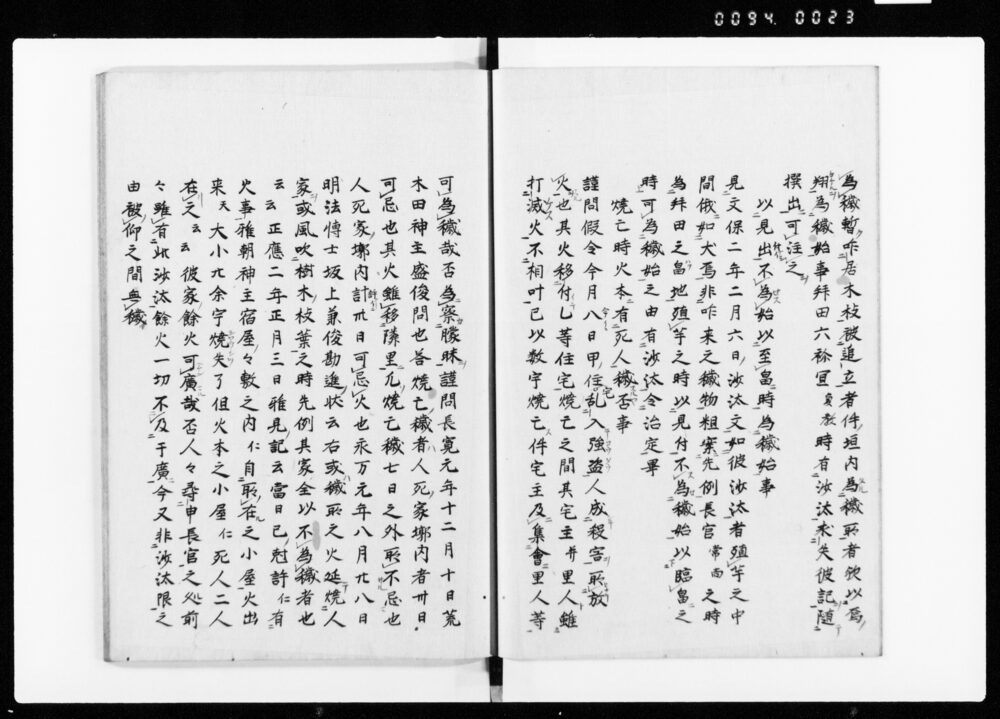 0094.0023
為穢暫咋居木枝被追立者件垣内為穢所者欤以焉
翔為穢始事拜田六祢冝時有沙汰未失彼記随
撰出可注之
以見出不為始以至畠時為穢始事
見文保二年二月六日沙汰文如彼沙汰者殖竽之中
間俄如犬焉非咋来之穢物粗案先例長官常尚之時
為拜田之畠地殖竽之時以見付不為穢始以臨畠之
時可為穢始之由有沙汰令治定畢
焼亡時火本有死人穢否事
謹問假令今月八日甲住宅乱入強盗人成殺害所放
火也其火移付乙等住宅焼亡之間其宅主并里人雖
打滅火不相叶已以数宇焼亡件宅主及集會里人等
可為穢哉否為察朦昧謹問長寛元年十二月十日荒
木田神主盛俊問也答焼亡穢者人死家塀内者卅日
可忌也其火雖移隣里凡焼亡穢七日之外所不忌也
人死家塀内計卅日可忌火也永万元年八月廿八日
明法博士坂上兼俊勘進状云右或穢所之火延焼人
家或風吹樹木枝葉之時先例其家全以不為穢者也
云云正應二年正月三日雅見記云當日巳尅許仁有
火事雅朝神主宿屋々敷之内仁自所在之小屋火出
来天大小六余宇焼失了但火本之小屋仁死人二人
在之云云彼家餘火可廣哉否人々尋申長官之処前
々雖有此沙汰餘火一切不及于廣今又非沙汰限之
由被仰之間無穢